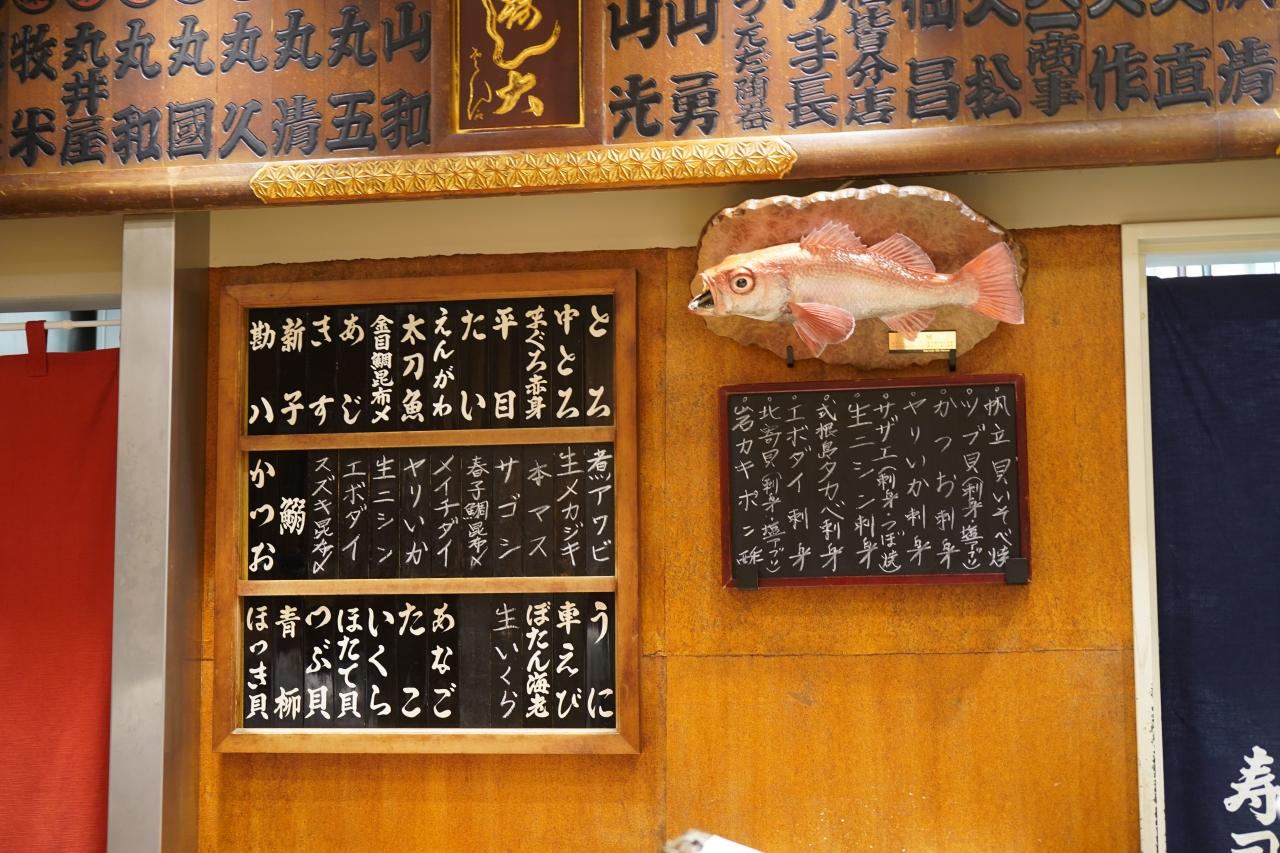 山和
丸五
丸清
丸久
丸國
丸和
丸井屋
牧米
山光
山勇
うま長
昌
松
商事
作
直
清
とろ
中とろ
まぐろ赤身
平目
たい
えんがわ
太刀魚
金目鯛昆布〆
あじ
きす
新子
勘八
煮アワビ
生メカジキ
本マス
サゴシ
春子鯛昆布〆
メイチダイ
ヤリいか
生ニシン
エボダイ
スズキ昆布〆
鰯
かつお
うに
車えび
ぼたん海老
生いくら
あなご
たこ
いくら
ほたて貝
つぶ貝
青柳
ほっき貝
帆立貝いそべ焼
ツブ貝(刺身・塩ゆで)
かつお刺身
ヤリいか刺身
サザエ(刺身・つぼ焼)
生ニシン刺身
式根島タカベ刺身
エボダイ刺身
北寄貝(刺身・塩ゆで)
岩カキポン酢
寿司